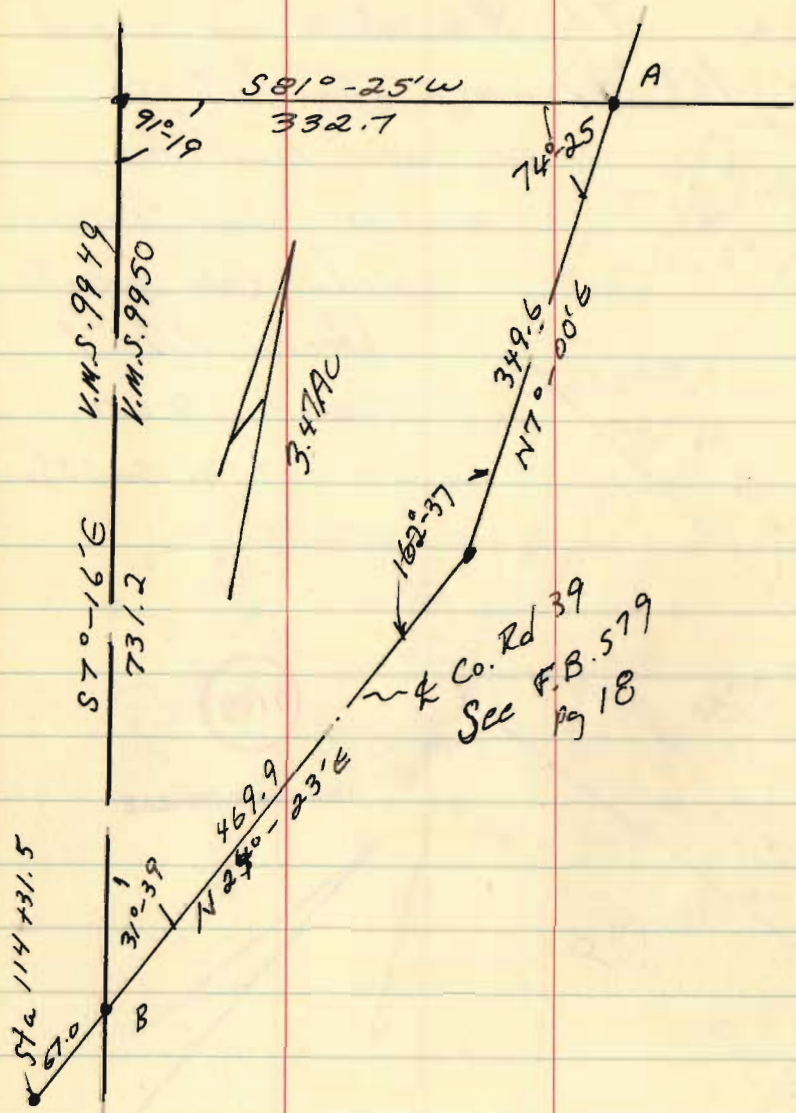 S81°-25'W
332.7
A
91°-19
74°-25
V.M.S. 9949
V.M.S. 9950
349.6
N7°-00'E
3.47AC
162°-37
S7°-16'E
731.2
℄ Co. Rd 39
See F.B. 579
pg 18
469.9
N24°-23'E
31°-39
Sta 114+31.5
67.0
B